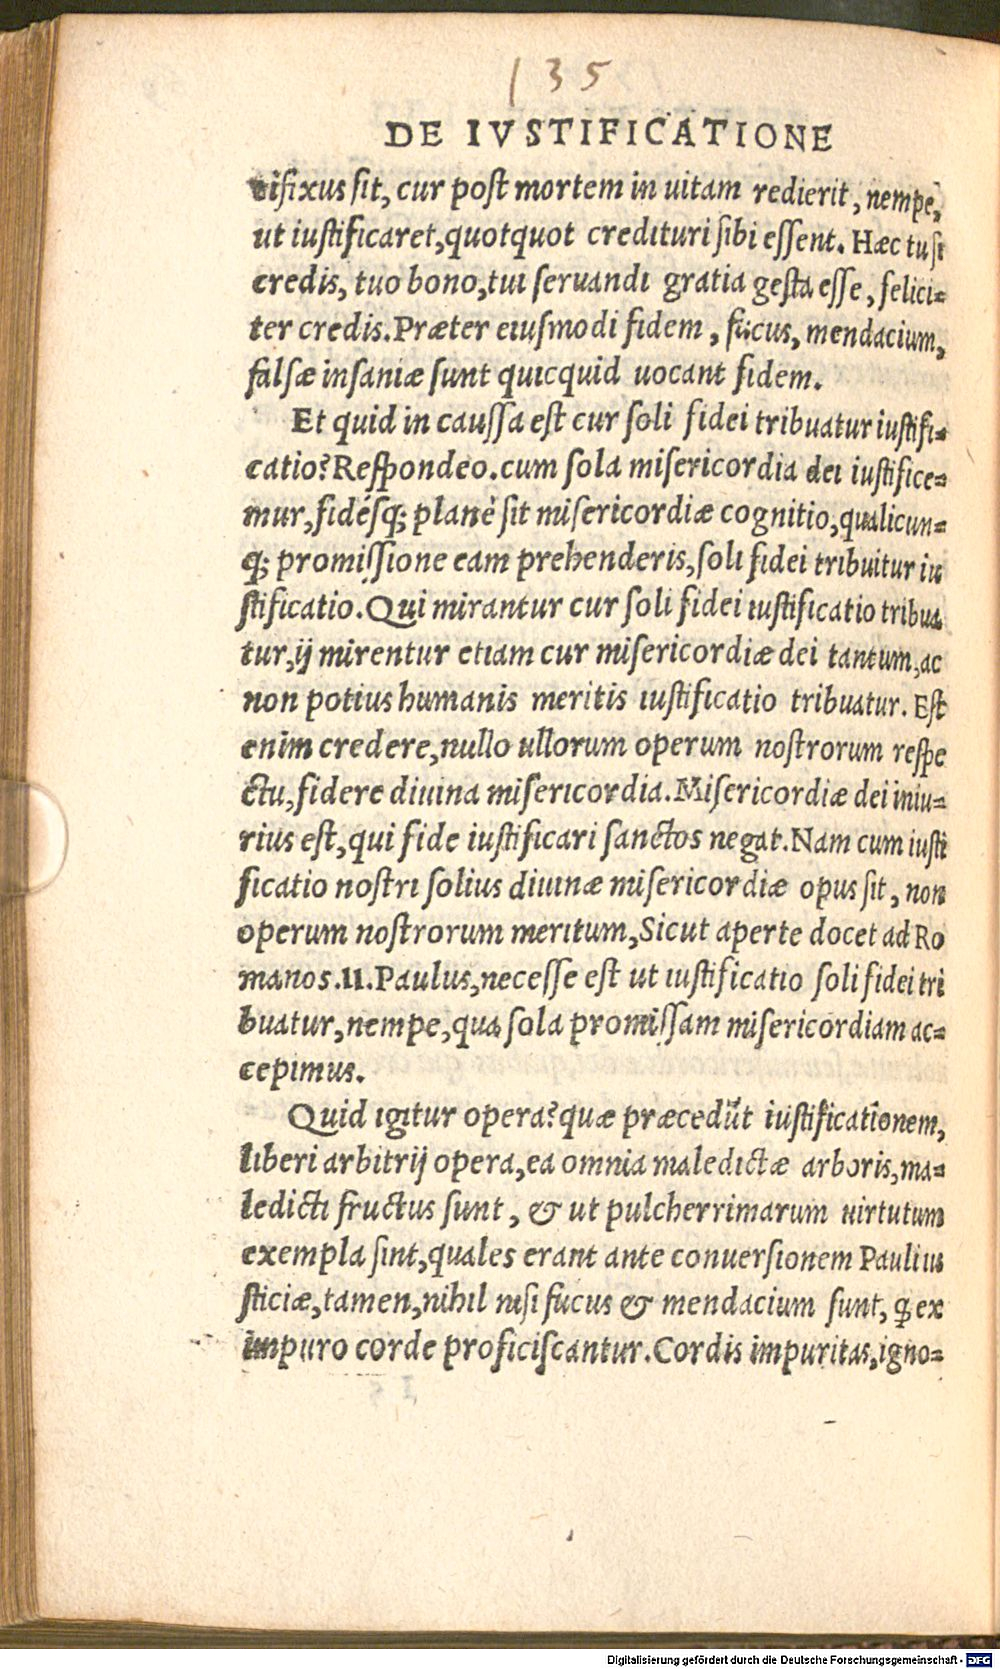 135
DE IVSTIFICATIONE
cifixus sit, cur post mortem in uitam redierit, nempe,
ut iustificaret, quotquot credituri sibi essent. Hæc tu si
credis, tuo bono, tui seruandi gratia gesta esse, felici=
ter credis. Præter eiusmodi fidem, fucus, mendacium,
falsæ insaniæ sunt quicquid uocant fidem.
Et quid in caussa est cur soli fidei tribuatur iustifi=
catio? Respondeo. cum sola misericordia dei iustifice=
mur, fidésq; planè sit misericordiæ cognitio, qualicun=
q; promissione eam prehenderis, soli fidei tribuitur iu
stificatio. Qui mirantur cur soli fidei iustificatio tribua
tur, ij mirentur etiam cur misericordiæ dei tantum, ac
non potius humanis meritis iustificatio tribuatur. Est
enim credere, nullo ullorum operum nostrorum respe
ctu, fidere diuina misericordia. Misericordiæ dei iniu=
rius est, qui fide iustificari sanctos negat. Nam cum iusti
ficatio nostri solius diuinæ misericordiæ opus sit, non
operum nostrorum meritum, Sicut aperte docet ad Ro
manos. 11. Paulus, necesse est ut iustificatio soli fidei tri
buatur, nempe, qua sola promissam misericordiam ac=
cepimus.
Quid igitur opera? quæ præcedūt iustificationem,
liberi arbitrij opera, ea omnia maledictæ arboris, ma=
ledicti fructus sunt, & ut pulcherrimarum uirtutum
exempla sint, quales erant ante conuersionem Pauli iu
sticiæ, tamen, nihil nisi fucus & mendacium sunt, ꝙ ex
impuro corde proficiscantur. Cordis impuritas, igno=
Digitalisierung gefördert durch die Deutsche Forschungsgemeinschaft - DFG